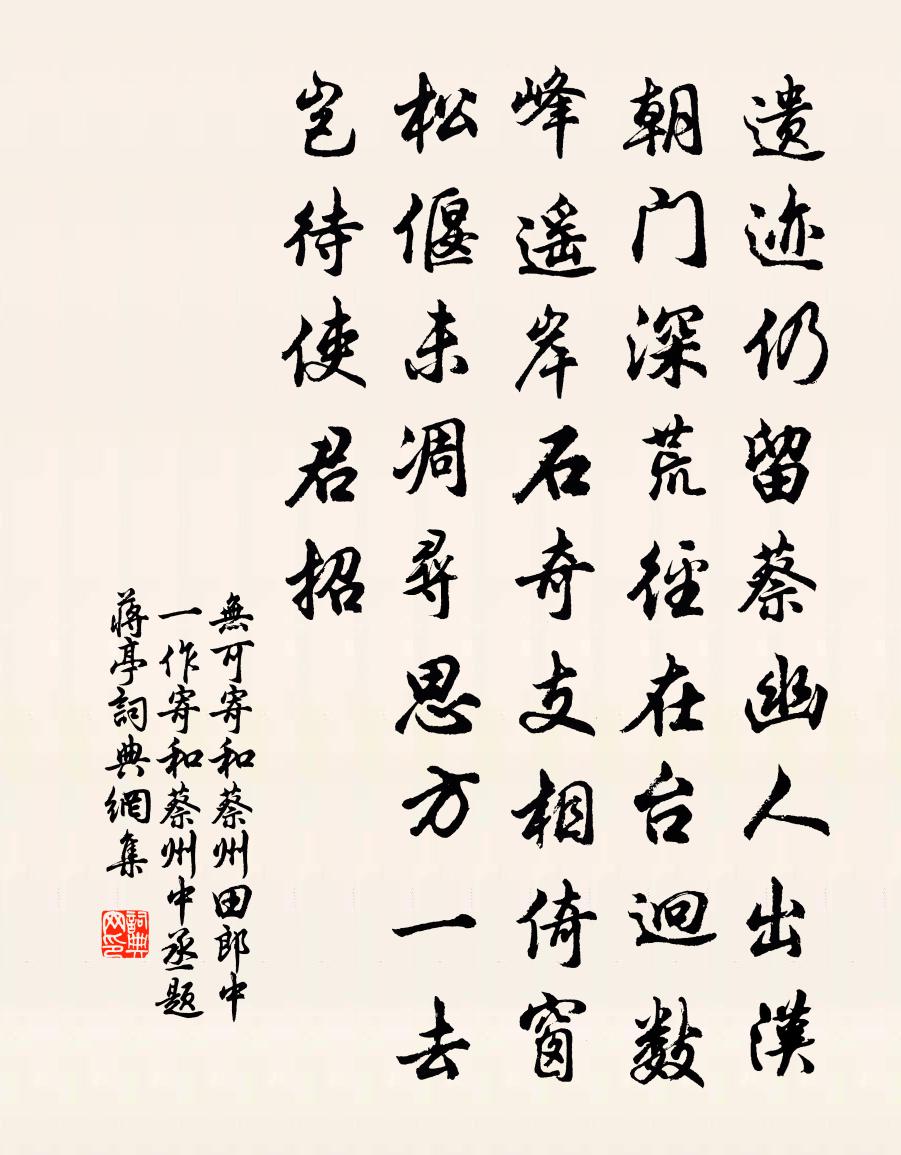 遗迹仍留蔡幽人出漢
朝门深荒径在台迥数
峰遥岸石奇支相倚窗
松偃未凋尋思方一去
岂待使君招
無可寄和蔡州田郎中
一作寄和蔡州中丞题
蒋亭詞典網集
詞典网印